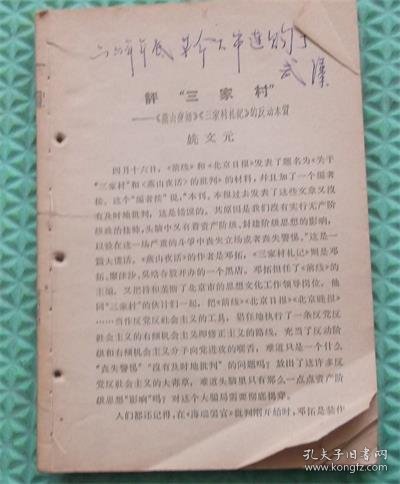 六六年年底革命大串连购于
武汉
评“三家村”
——《燕山夜话》《三家村札记》的反动本质
姚文元
四月十六日，《前线》和《北京日报》发表了题名为《关于
“三家村”和《燕山夜话》的批判》的材料，并且加了一个编者
按。这个“编者按”说，“本刊、本报过去发表了这些文章又没
有及时地批判，这是错误的。其原因是我们没有实行无产阶
级政治挂帅，头脑中又有着资产阶级、封建阶级思想的影响，
以致在这一场严重的斗争中丧失立场或者丧失警惕。”这是一
篇大谎话。《燕山夜话》的作者是邓拓，《三家村札记》则是邓
拓、廖沫沙、吴晗合股开办的一个黑店。邓拓担任了《前线》的
主编，又把持和垄断了北京市的思想文化工作领导岗位，他
同“三家村”的伙计们一起，把《前线》《北京日报》《北京晚报》
……当作反党反社会主义的工具，猖狂地执行了一条反党反
社会主义的右倾机会主义即修正主义的路线，充当了反动阶
级和右倾机会主义分子向党进攻的喉舌，难道只是一个什么
“丧失警惕”“没有及时地批判”的问题吗？放出了这许多反
党反社会主义的大毒草，难道头脑里只有那么一点点资产阶
级思想“影响”吗？对这个大骗局需要彻底揭穿。
人们都还记得，在《海瑞罢官》批判刚开始时，邓拓是装作
孔夫子旧书网
kongfz.com